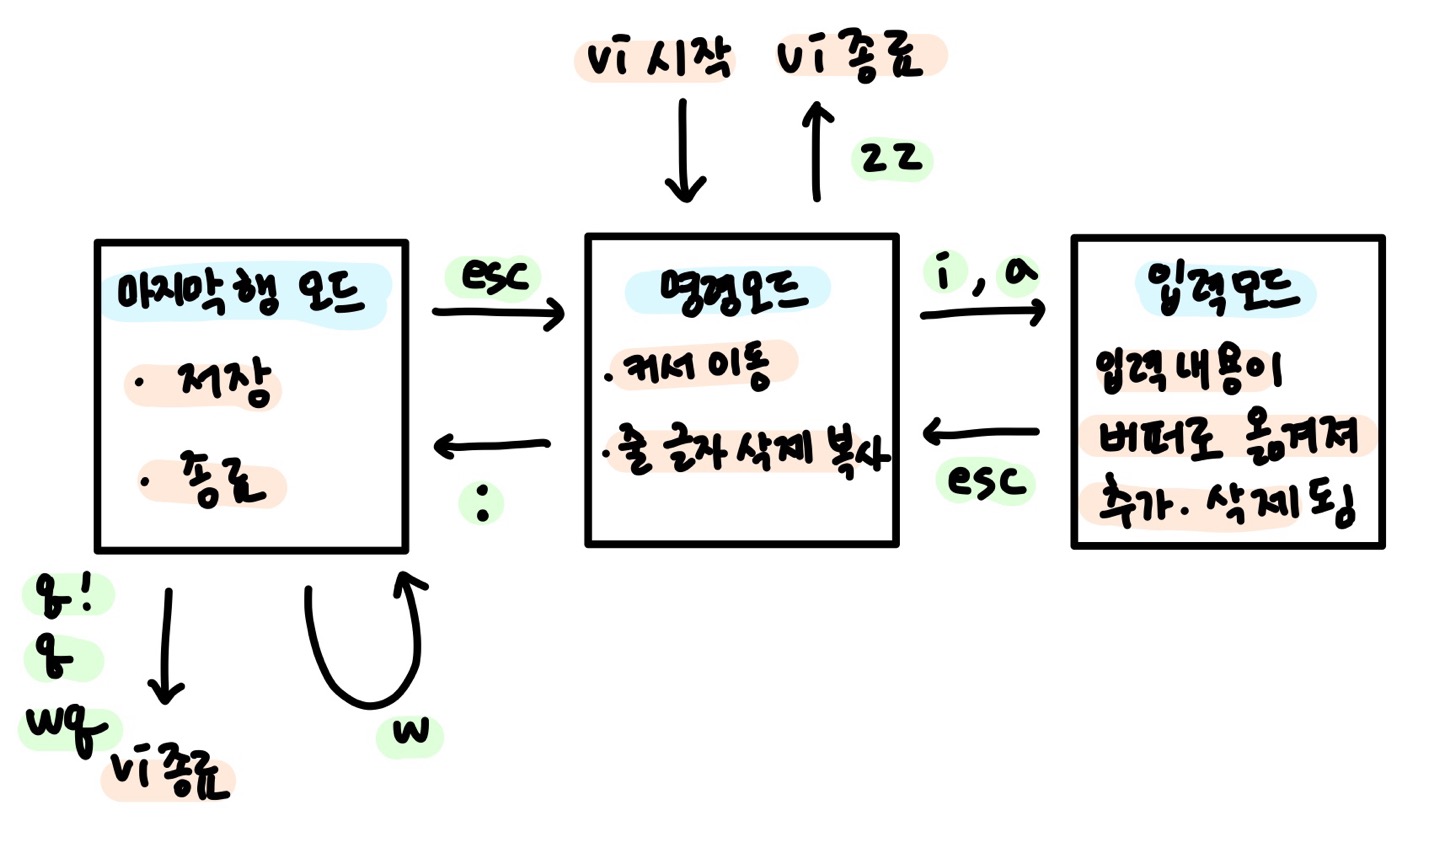 vi 시작
vi 종료
zz
마지막 행 모드
· 저장
· 종료
esc
:
명령모드
· 커서 이동
· 줄 글자 삭제 복사
i, a
esc
입력모드
입력 내용이
버퍼로 옮겨져
추가 · 삭제 됨
q!
q
wq
vi 종료
w